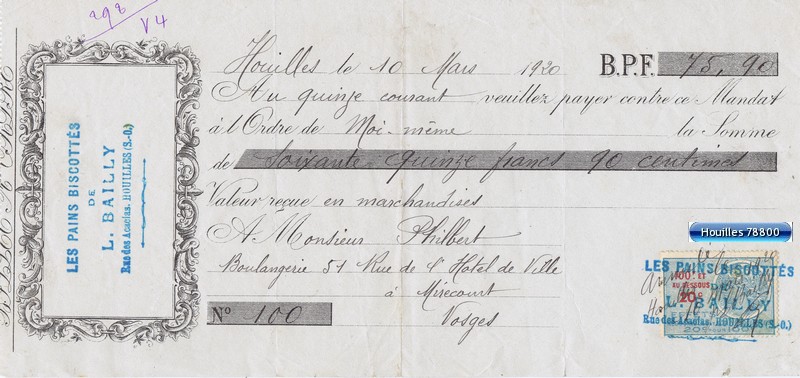 298
V4
LES PAINS BISCOTTÉS
DE
L. BAILLY
Rue des Acacias. HOUILLES (S.-O.)
Houilles le 10 Mars 1920 B.P.F. 75,90
Au quinze courant veuillez payer contre ce Mandat
à l'Ordre de Moi-même la Somme
de soixante quinze francs 90 centimes
Valeur reçue en marchandises
A Monsieur Philbert
Boulangerie 51 Rue de l'Hotel de Ville
à Mirecourt
Vosges
No 100
Houilles 78800
LES PAINS BISCOTTÉS
DE
100F ET
AU DESSOUS
20c
L. BAILLY
Rue des Acacias. HOUILLES (S.-O.)